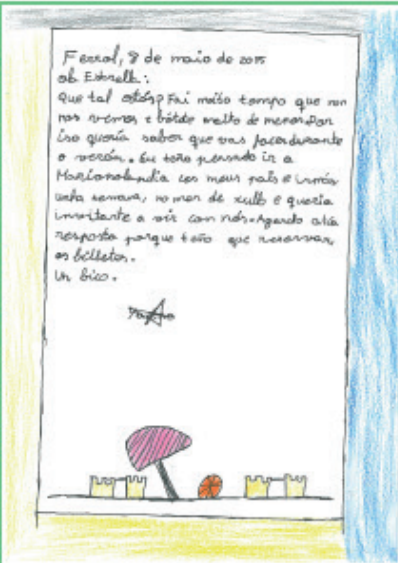 Ferrol, 8 de maio de 2015
Que tal estás? Fai moito tempo que non
nos vemos e bótote moito de menos. Por
iso quería saber que vas facer durante
o verán. Eu teño pensado ir a
Marianolandia cos meus pais e irmás
unha semana, no mes de xullo e quería
invitarte a vir con nós. Agardo a túa
resposta porque teño que reservar
os billetes.
Un bico.